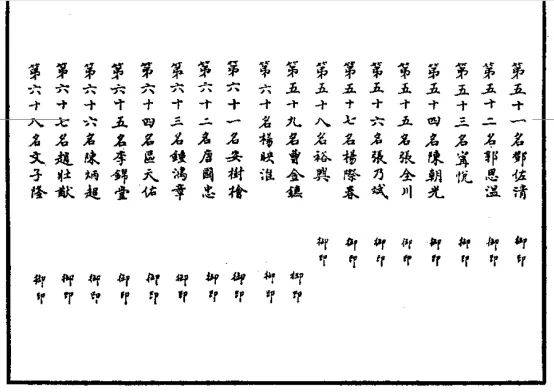 第五十一名鄧佐清 御印
第五十二名郭恩溫 御印
第五十三名寗悅 御印
第五十四名陳朝光 御印
第五十五名張全川 御印
第五十六名張乃斌 御印
第五十七名楊際春 御印
第五十八名裕興 御印
第五十九名曹金鏕 御印
第六十名楊映淮 御印
第六十一名安樹檜 御印
第六十二名唐國忠 御印
第六十三名鍾鴻章 御印
第六十四名區天佑 御印
第六十五名李錦堂 御印
第六十六名陳炳超 御印
第六十七名趙壯猷 御印
第六十八名文子隆 御印